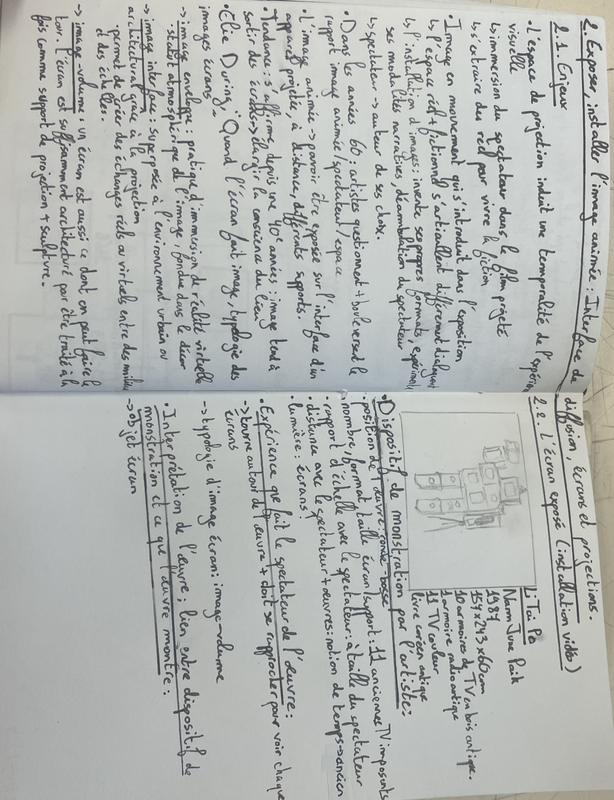 2. Exposer, installer l'image animée. Interface de diffusion, écrans et projections.
2.1. Enjeux
• L'espace de projection induit une temporalité de l'expérience
visuelle
↳ immersion du spectateur dans le film projeté
↳ s'extraire du réel pour vivre la fiction
• Image en mouvement qui s'introduit dans l'exposition
↳ l'espace réel + fictionnel s'articulent différemment dialoguent
↳ l'installation d'images : invente ses propres formats, expérimente
ses modalités narratives, déambulation du spectateur
↳ spectateur → auteur de ses choix.
• Dans les années 60 artistes questionnent + bouleversent le
rapport image animée/spectateur/espace
• L'image animée → pouvoir être exposée sur l'interface d'un
appareil, projetée, à distance, différents supports.
• Tendance : s'affirme depuis une 40e années : image tend à
sortir des écrans → élargir la conscience du lieu
• Elie During, "Quand l'écran fait image, typologie des
images écrans"
→ image enveloppe : pratique d'immersion de réalité virtuelle
statut atmosphérique de l'image, fondue dans le décor
→ image interface : superposée à l'environnement urbain ou
architectural grâce à la projection
permet de créer des échanges réels ou virtuels entre des milieux
et des échelles.
→ image-volume : un écran est aussi ce dont on peut faire le
tour. l'écran est suffisamment architecturé pour être traité à la
fois comme support de projection + sculpture.
2.2. L'écran exposé (installation vidéo)
Li Tai Po
Nam June Paik
1987
154 x 243 x 66 cm
10 armoires de TV en bois antique.
1 armoire radio antique
11 TV couleur
livre coréen antique
• Dispositif de monstration par l'artiste :
• position de l'œuvre : ronde-bosse
• nombre, format, taille écran/support : 11 anciennes TV imposants
• rapport d'échelle avec le spectateur : à taille du spectateur
• distance avec le spectateur + œuvres : notion de temps → ancien
• lumière : écrans !
• Expérience que fait le spectateur de l'œuvre :
→ tourne autour de l'œuvre + doit se rapprocher pour voir chaque
écrans
→ typologie d'image écran : image-volume
• Interprétation de l'œuvre : lien entre dispositif de
monstration et ce que l'œuvre montre :
→ objet écran